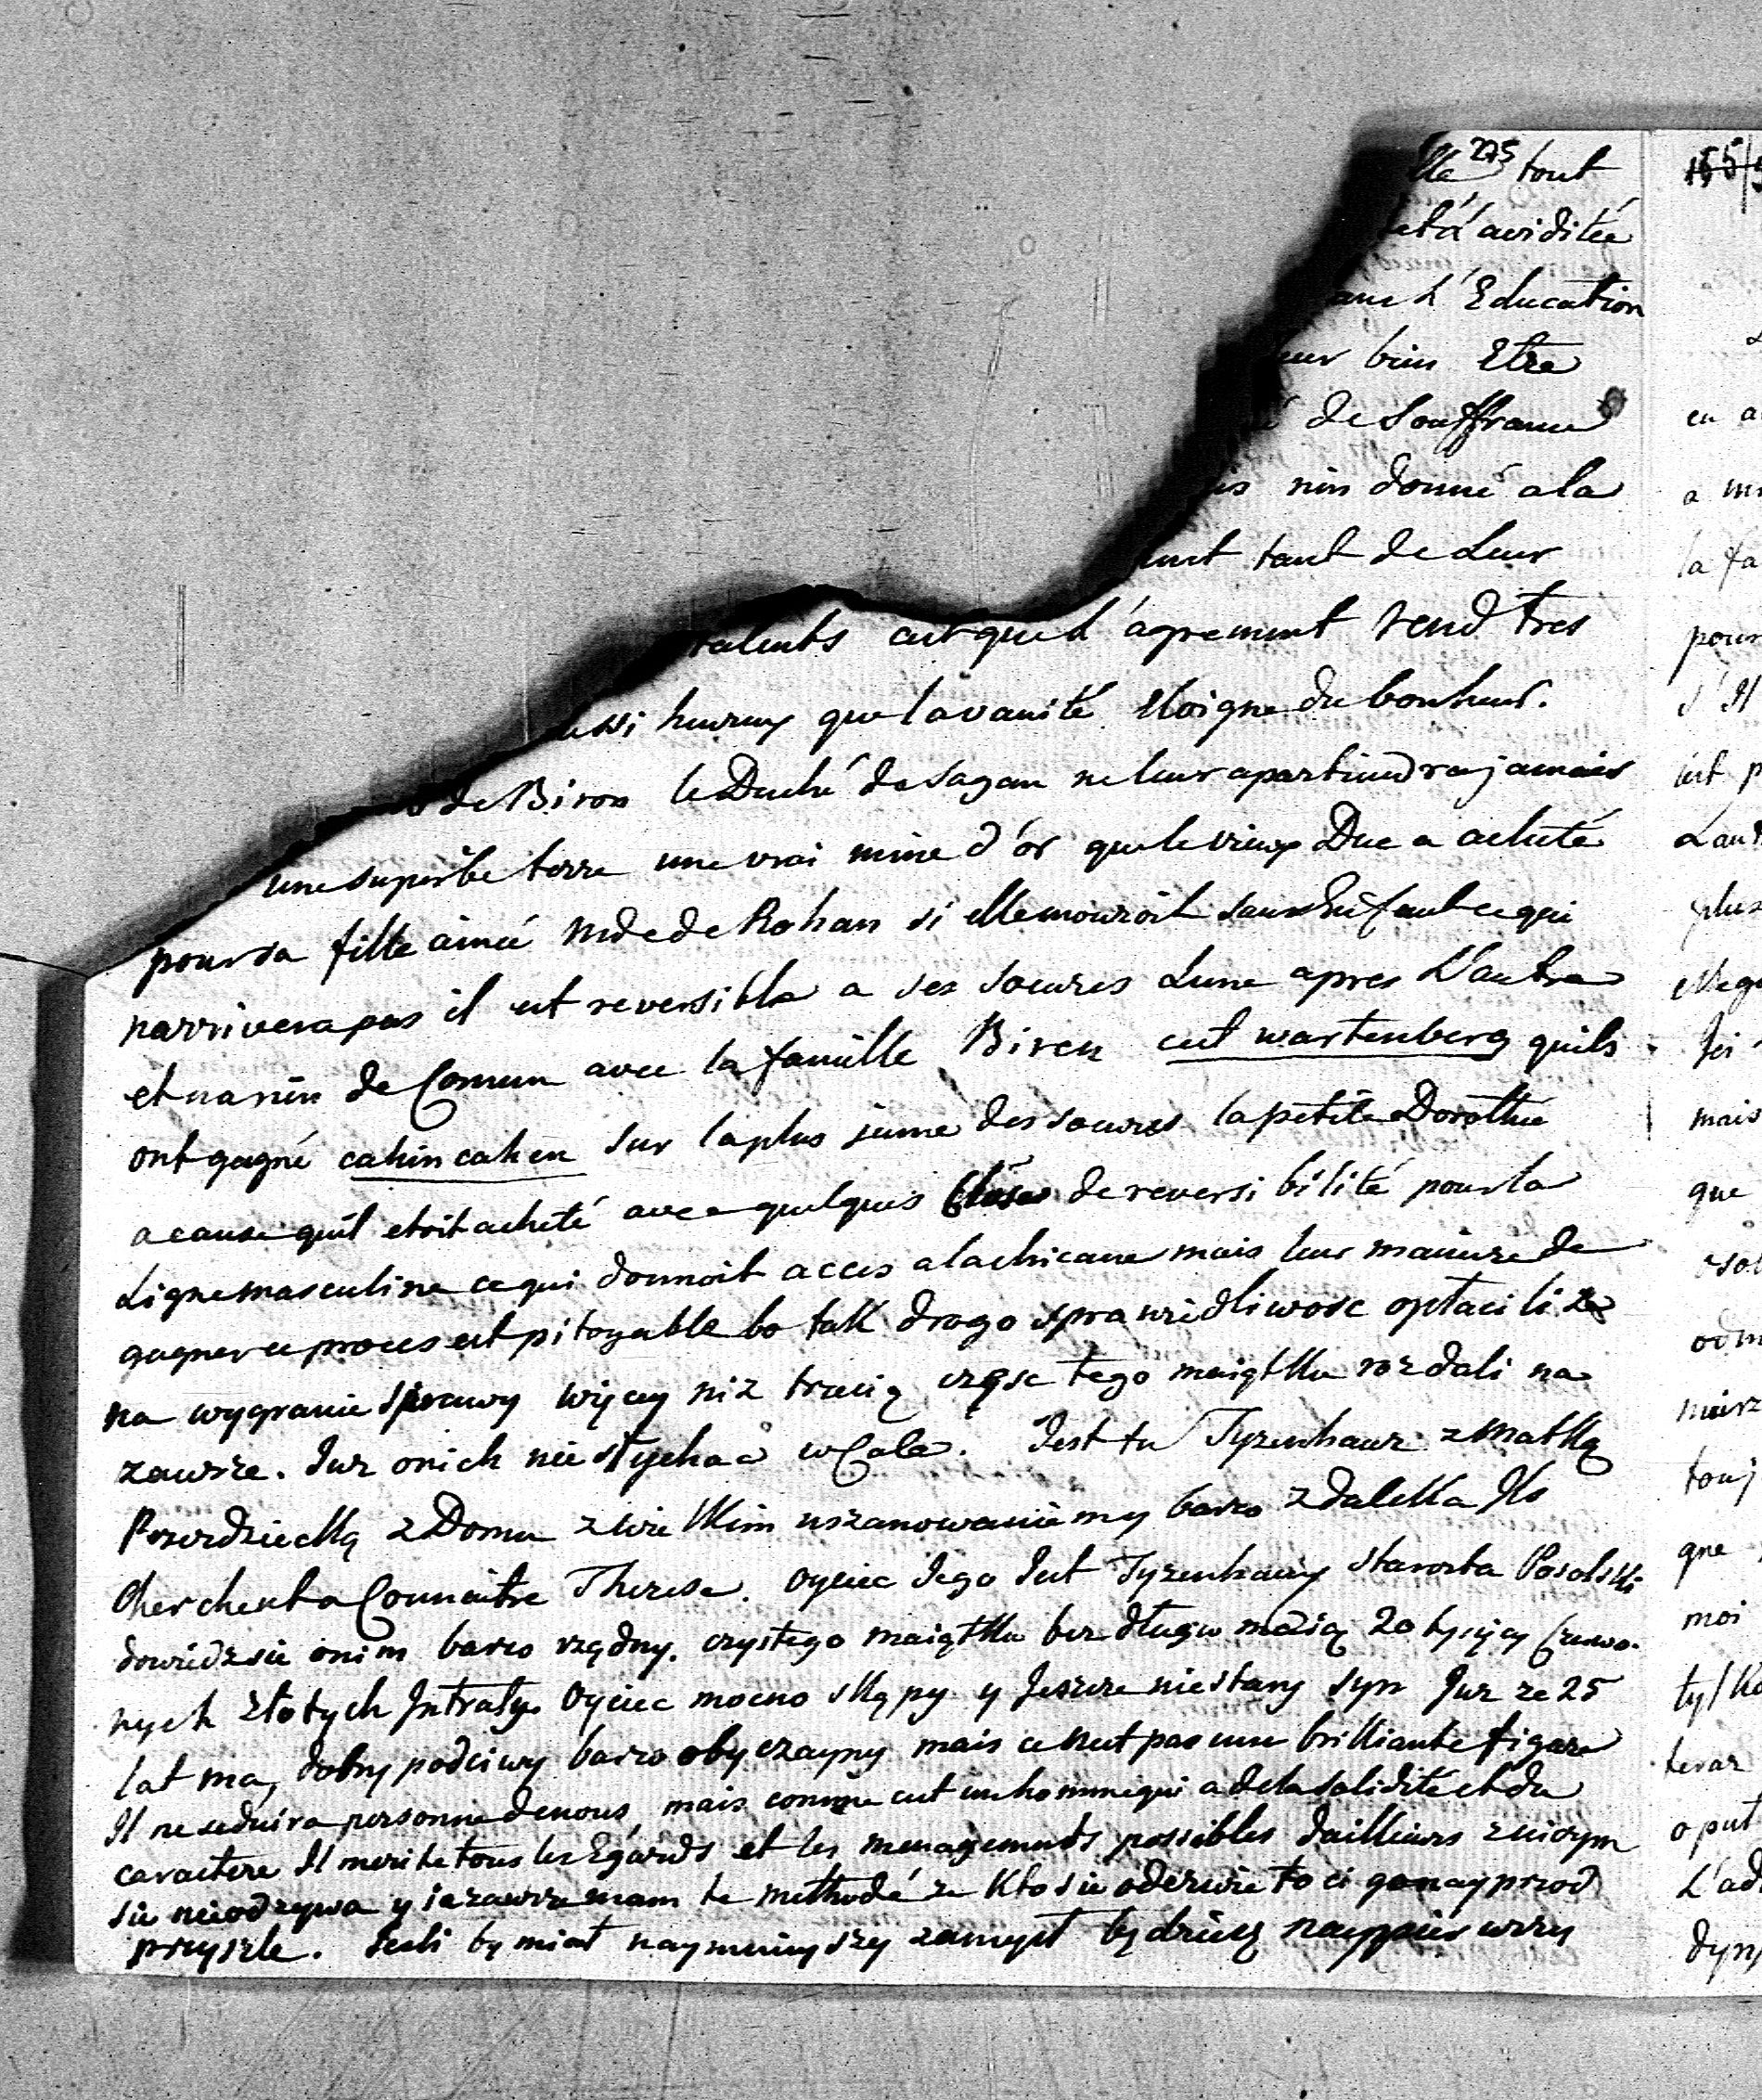 275
lle tout
et d'aviditée
ance L'Education
leur bien Etre
de Souffrance
is rien donné a la
tant de Leur
talents cet que L'agrement rend tres
ussi heureux que la vanité Eloigne du bonheur.
de Biron le Duché de Sagan ne leur apartiendra jamais
une superbe terre une vrai mine d'or que le vieux Duc a acheté
pour sa fille ainée Mde de Rohan si elle mouroit sans Enfant ce qui
narrivera pas il est reversible a ses soeures Lune apres L'autre
et na rien de Comun avec la famille Biren cest wartenberg quils
ont gagné cahin cahen sur la plus jeune des soeures la petite Dorothée
a cause quil etoit acheté avec quelques Closes de reversibilité pour la
Ligne masculine ce qui donnoit acces a la chicane mais leur maniere de
gagner ce proces est pitoyable bo tak drogo sprawiedliwosc optacili ze
na wygranie sprawy więcey niz trzecią częsc tego maiątku rozdali na
zawsze. Iuz o nich nie słychac w Cale. Iest tu Tyzenhauz z Matką
Przezdziecką z Domu z wielkim uszanowaniem y barzo z daleka Ils
Cherchent a Connaitre Therese. Oyciec Iego Iest Tyzenhauz starosta Posolski
dowiedz sie o nim barzo rządny. czystego maiątku bez długu maią 20 tysięcy Czerwo-
nych złotych Intraty. Oyciec mocno skąpy y Jeszcze nie stary syn Juz ze 25
lat ma, dobry podciwy barzo obyczayny mais ce nest pas une brilliante figure
Il ne seduira personne de nous, mais comme cest un homme qui a de la solidité et du
caractere Il merite tous les Egards et les menagements possibles dailleurs z niczym
sie nie odzywa y ia zawsze mam te methode ze kto sie odezwie to ci go nayprzod
przyszle. Iesli by miał naymnieyszy zamysł będziesz naypierwszy